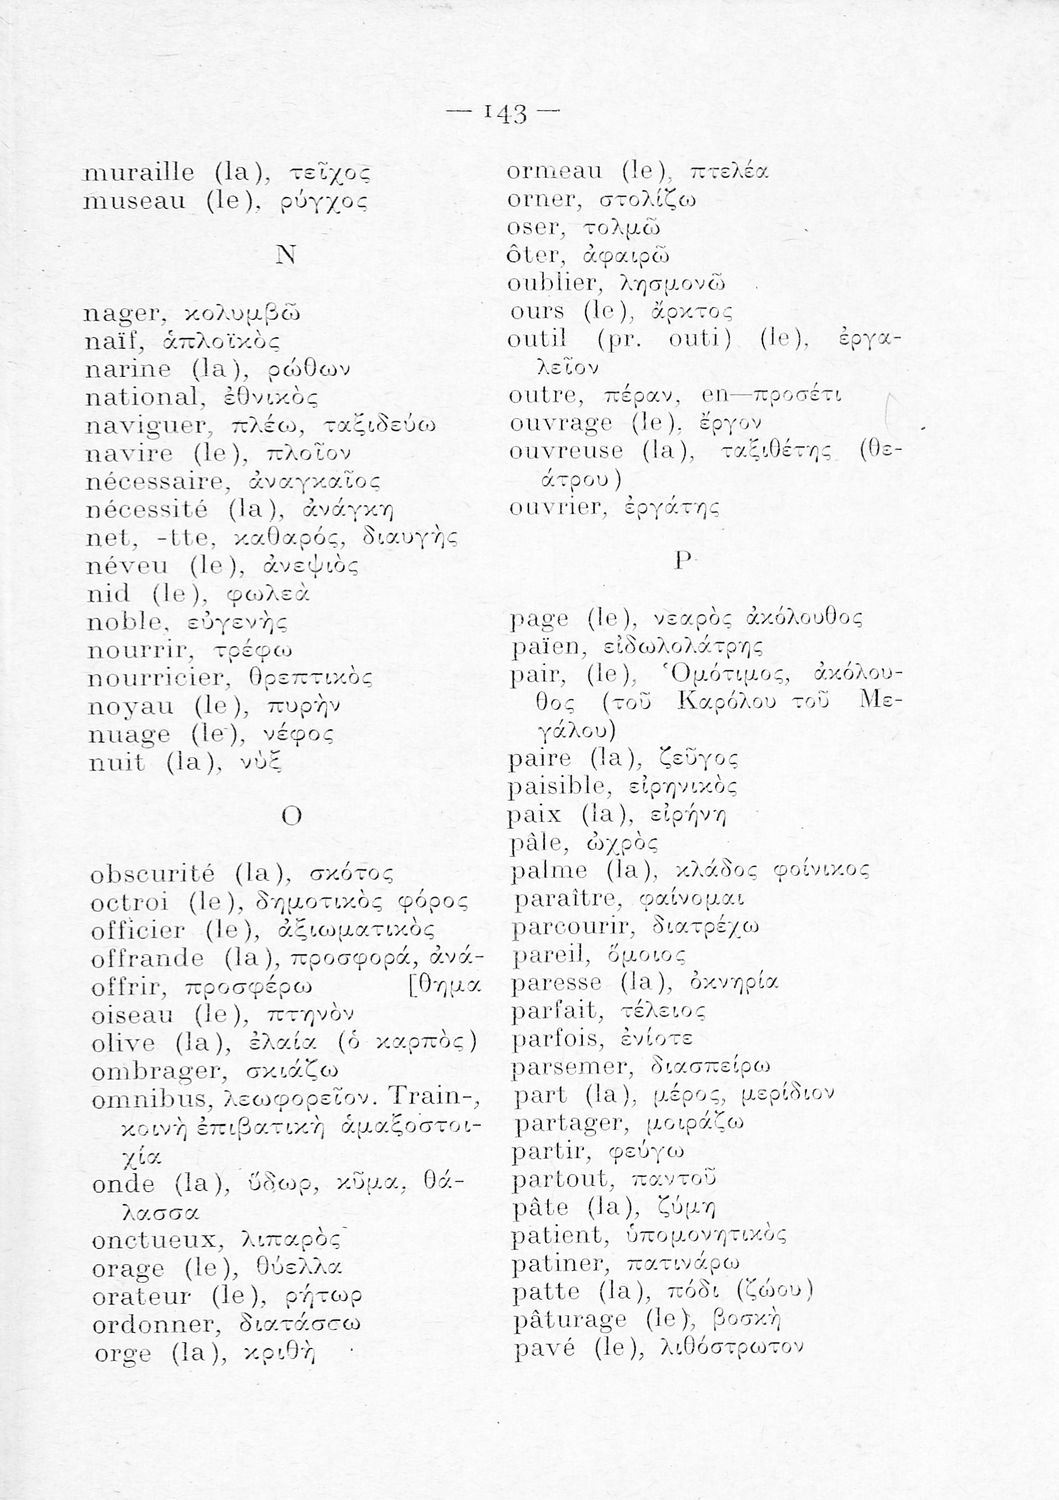 — 143 —
muraille (la), τεῖχος
museau (le), ρύγχος
N
nager, κολυμβῶ
naïf, ἁπλοϊκὸς
narine (la), ρώθων
national, ἐθνικὸς
naviguer, πλέω, ταξιδεύω
navire (le), πλοῖον
nécessaire, ἀναγκαῖος
nécessité (la), ἀνάγκη
net, -tte, καθαρός, διαυγὴς
néveu (le), ἀνεψιὸς
nid (le), φωλεὰ
noble, εὐγενὴς
nourrir, τρέφω
nourricier, θρεπτικὸς
noyau (le), πυρὴν
nuage (le), νέφος
nuit (la), νὺξ
O
obscurité (la), σκότος
octroi (le), δημοτικὸς φόρος
officier (le), ἀξιωματικὸς
offrande (la), προσφορά, ἀνά-
offrir, προσφέρω [θημα
oiseau (le), πτηνὸν
olive (la), ἐλαία (ὁ καρπὸς)
ombrager, σκιάζω
omnibus, λεωφορεῖον. Train-,
κοινὴ ἐπιβατικὴ ἁμαξοστοι-
χία
onde (la), ὕδωρ, κῦμα, θά-
λασσα
onctueux, λιπαρὸς
orage (le), θύελλα
orateur (le), ρήτωρ
ordonner, διατάσσω
orge (la), κριθὴ
ormeau (le), πτελέα
orner, στολίζω
oser, τολμῶ
ôter, ἀφαιρῶ
oublier, λησμονῶ
ours (le), ἄρκτος
outil (pr. outi) (le), ἐργα-
λεῖον
outre, πέραν, en—προσέτι
ouvrage (le), ἔργον
ouvreuse (la), ταξιθέτης (θε-
άτρου)
ouvrier, ἐργάτης
P
page (le), νεαρὸς ἀκόλουθος
païen, εἰδωλολάτρης
pair, (le), Ὁμότιμος, ἀκόλου-
θος (τοῦ Καρόλου τοῦ Με-
γάλου)
paire (la), ζεῦγος
paisible, εἰρηνικὸς
paix (la), εἰρήνη
pâle, ὠχρὸς
palme (la), κλάδος φοίνικος
paraître, φαίνομαι
parcourir, διατρέχω
pareil, ὅμοιος
paresse (la), ὀκνηρία
parfait, τέλειος
parfois, ἐνίοτε
parsemer, διασπείρω
part (la), μέρος, μερίδιον
partager, μοιράζω
partir, φεύγω
partout, παντοῦ
pâte (la), ζύμη
patient, ὑπομονητικὸς
patiner, πατινάρω
patte (la), πόδι (ζώου)
pâturage (le), βοσκὴ
pavé (le), λιθόστρωτον